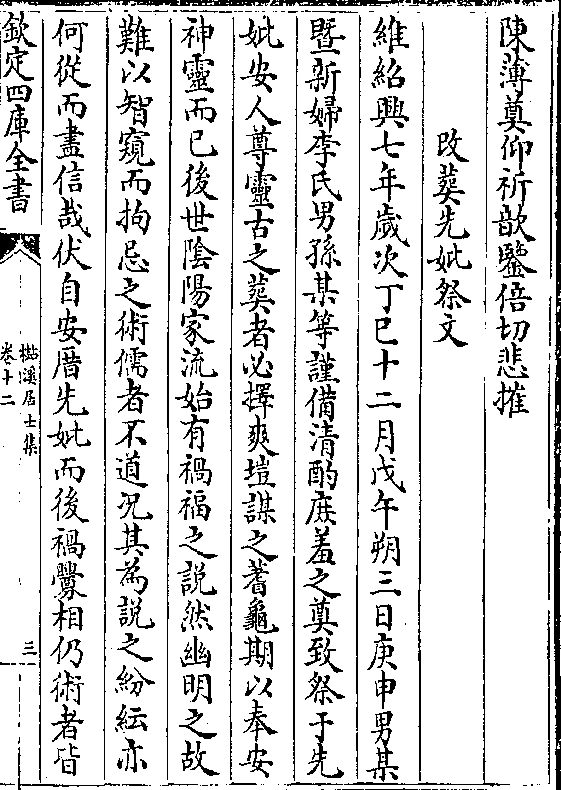 陳薄奠仰祈歆鑒倍切悲摧
改葬先妣祭文
維紹興七年歲次丁巳十二月戊午朔三日庚申男某
暨新婦李氏男孫某等謹備清酌庶羞之奠致祭于先
妣安人尊靈古之葬者必擇爽塏謀之蓍龜期以奉安
神靈而已後世陰陽家流始有禍福之說然幽明之故
難以智窺而拘忌之術儒者不道況其為說之紛紜亦
何從而盡信哉伏自安厝先妣而後禍釁相仍術者皆
欽定四庫全書
楳溪居士集
卷十二
三